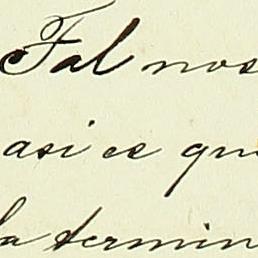 Tal nos
asi es que
la termin